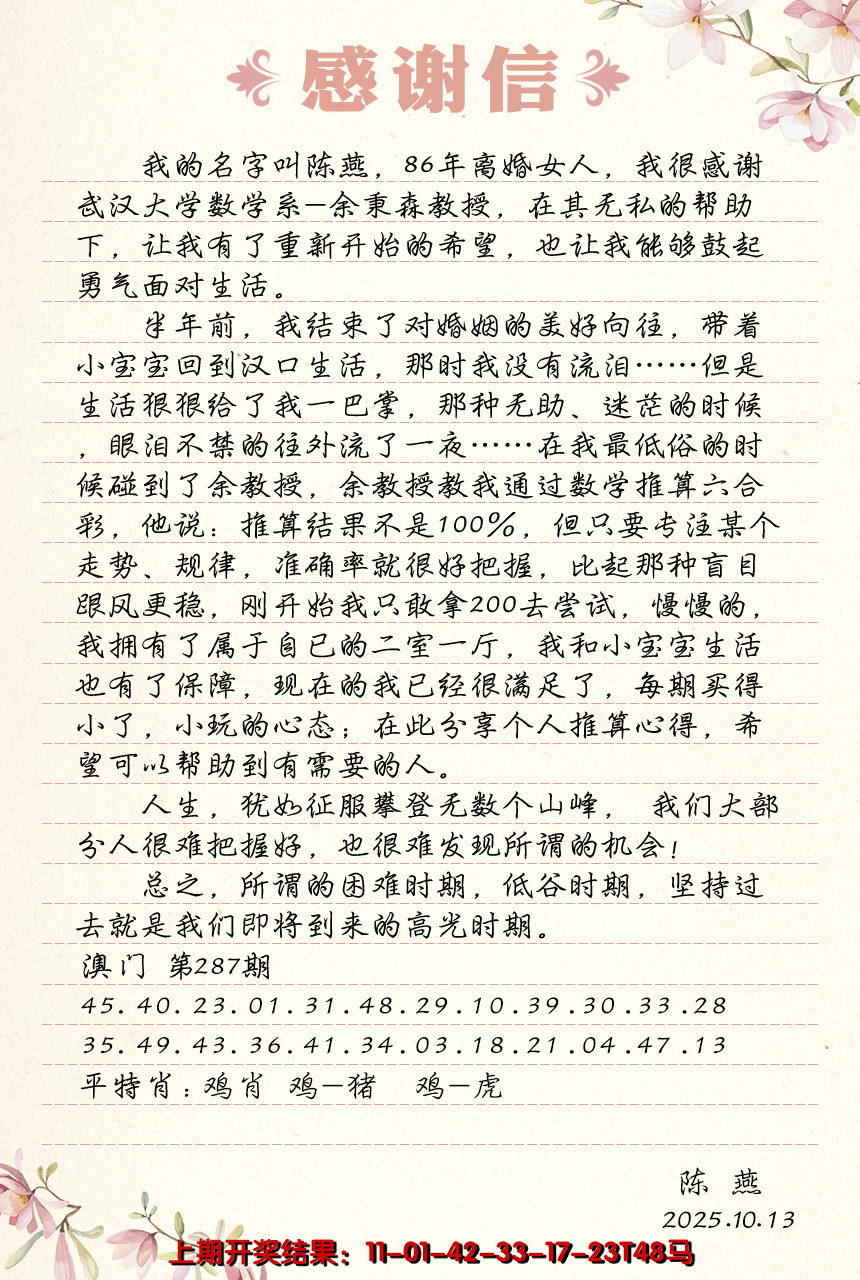 感谢信
我的名字叫陈燕，86年离婚女人，我很感谢
武汉大学数学系—余秉森教授，在其无私的帮助
下，让我有了重新开始的希望，也让我能够鼓起
勇气面对生活。
半年前，我结束了对婚姻的美好向往，带着
小宝宝回到汉口生活，那时我没有流泪……但是
生活狠狠给了我一巴掌，那种无助、迷茫的时候
，眼泪不禁的往外流了一夜……在我最低俗的时
候碰到了余教授，余教授教我通过数学推算六合
彩，他说：推算结果不是100%，但只要专注某个
走势、规律，准确率就很好把握，比起那种盲目
跟风更稳，刚开始我只敢拿200去尝试，慢慢的，
我拥有了属于自已的二室一厅，我和小宝宝生活
也有了保障，现在的我已经很满足了，每期买得
小了，小玩的心态；在此分享个人推算心得，希
望可以帮助到有需要的人。
人生，犹如征服攀登无数个山峰， 我们大部
分人很难把握好，也很难发现所谓的机会！
总之，所谓的困难时期，低谷时期，坚持过
去就是我们即将到来的高光时期。
澳门 第287期
45.40.23.01.31.48.29.10.39.30.33.28
35.49.43.36.41.34.03.18.21.04.47.13
平特肖：鸡肖 鸡—猪 鸡—虎
陈 燕
2025.10.13
上期开奖结果：11-01-42-33-17-23T48马